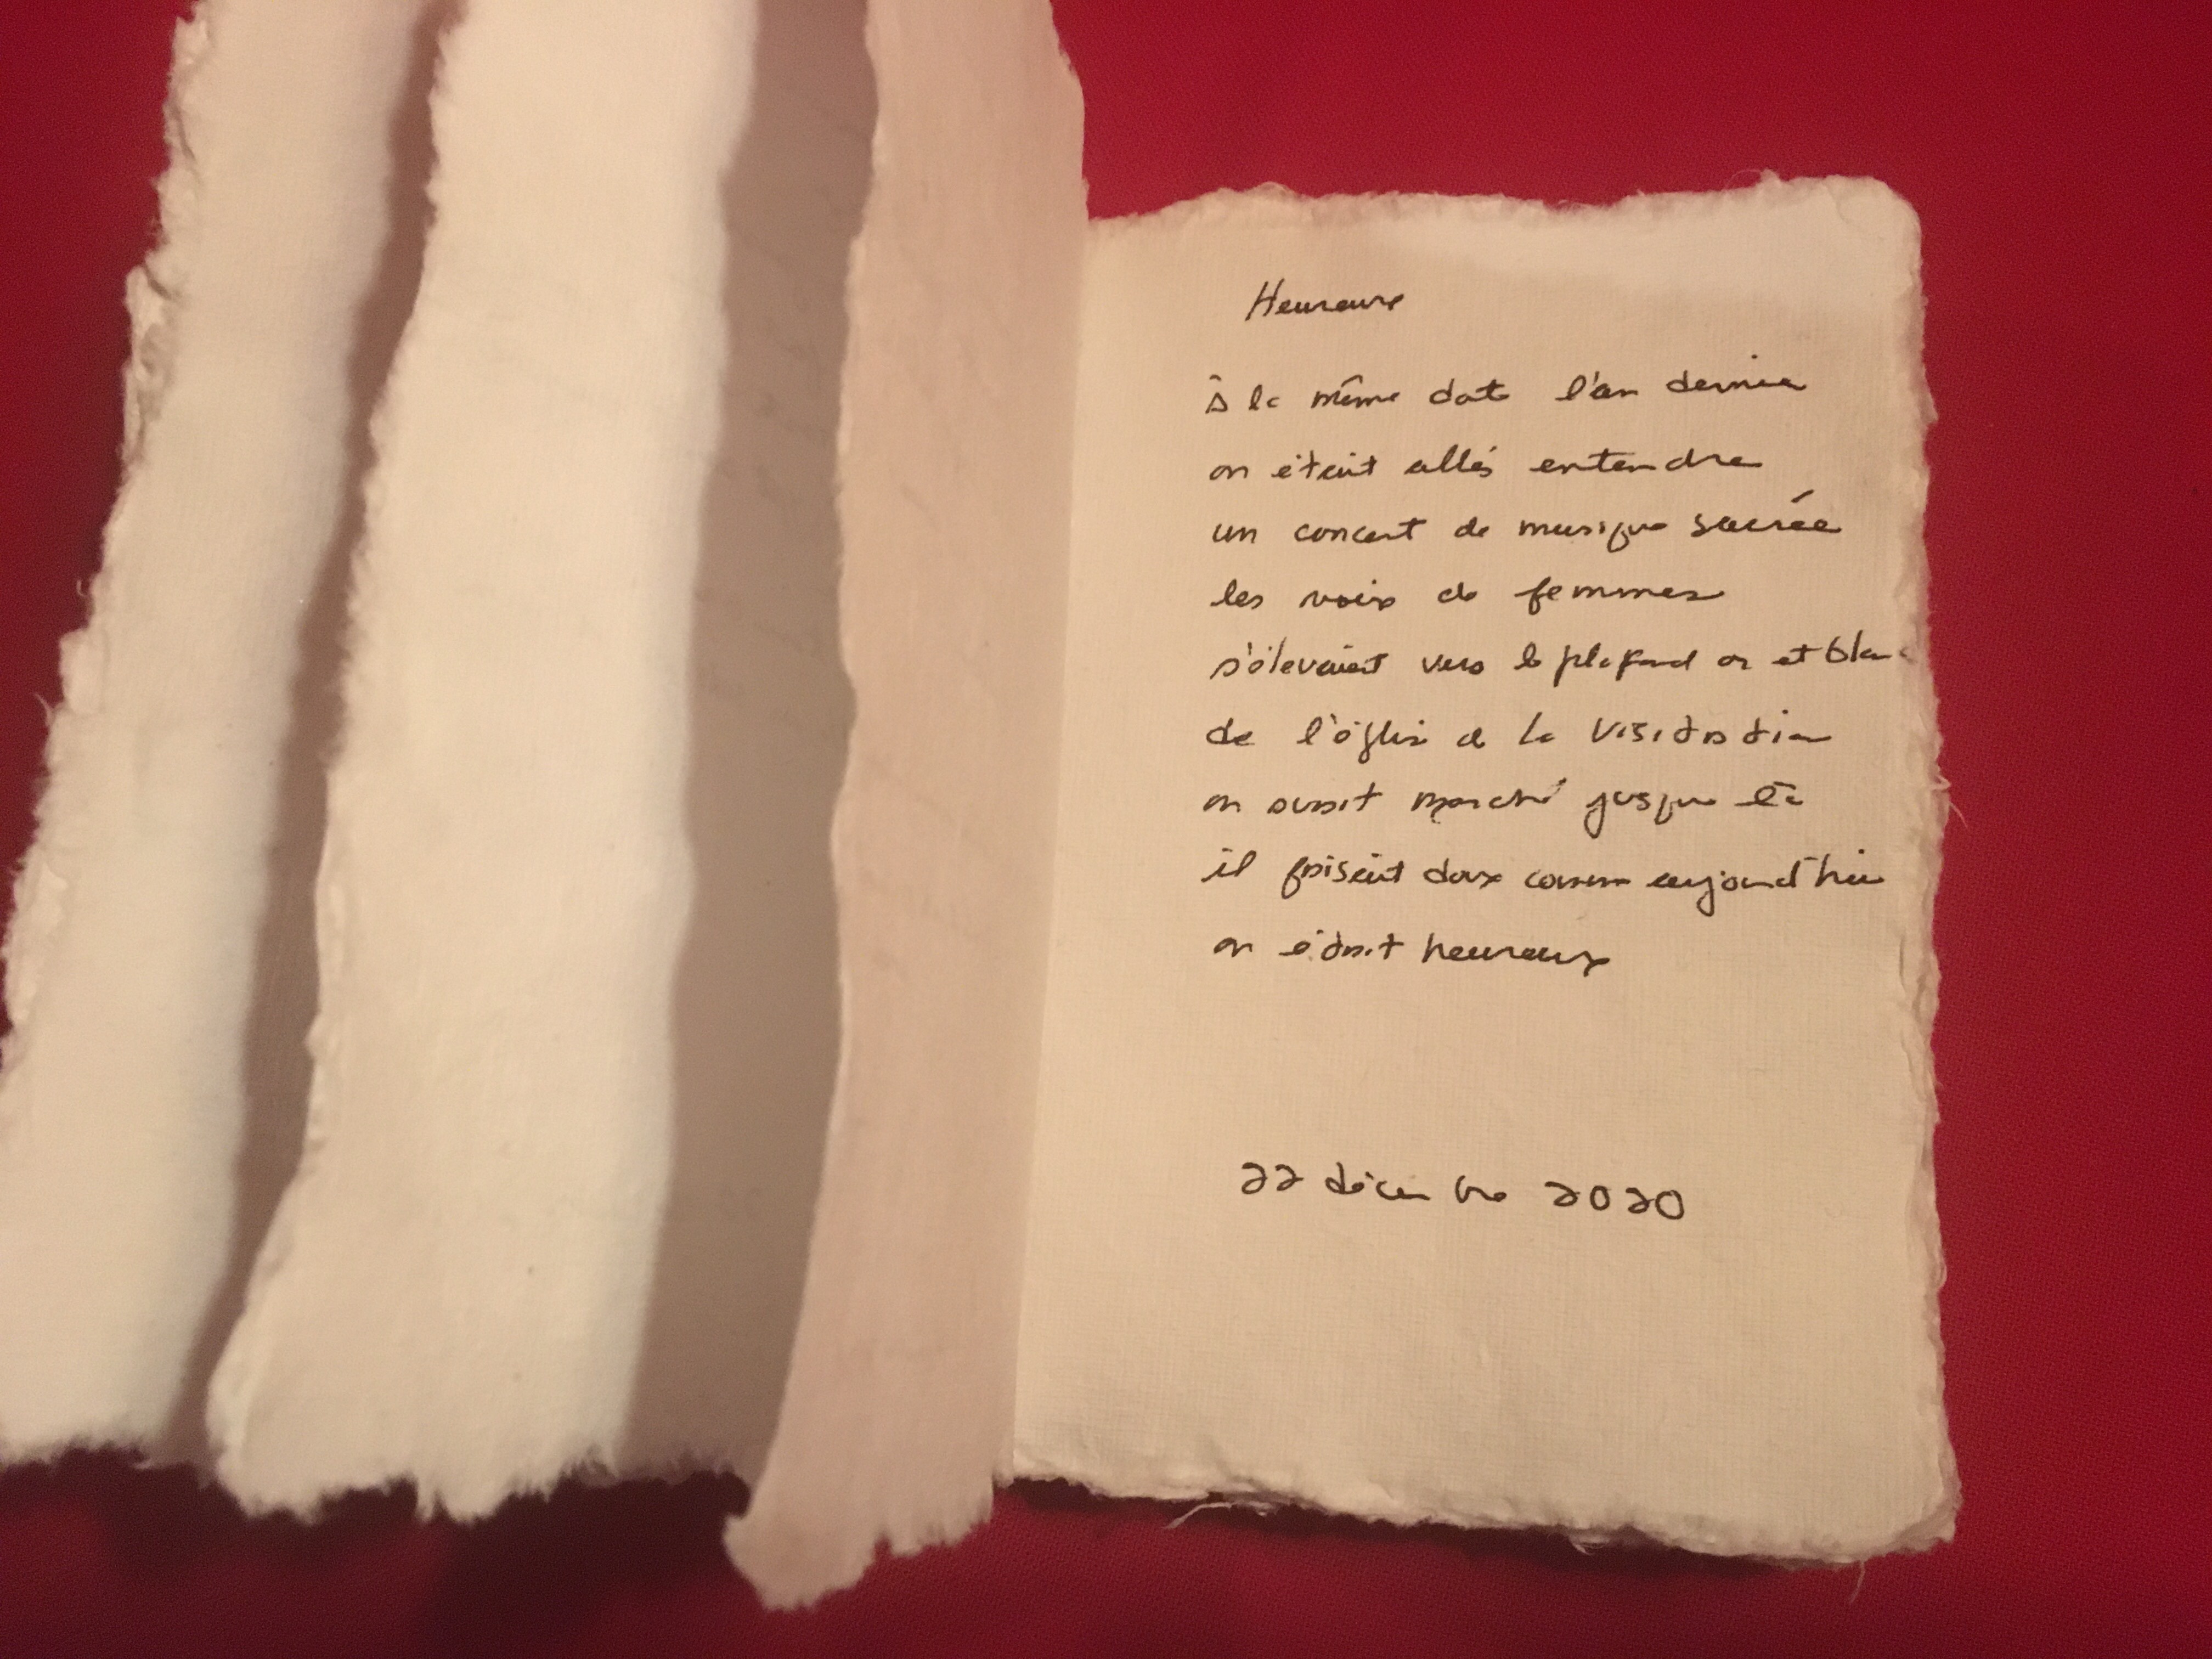 Heureux
à la même date l'an dernier
on était allés entendre
un concert de musique sacrée
les voix de femmes
s'élevaient vers le plafond or et blanc
de l'église de la Visitation
on avait marché jusque là
il faisait doux comme aujourd'hui
on était heureux
22 décembre 2020